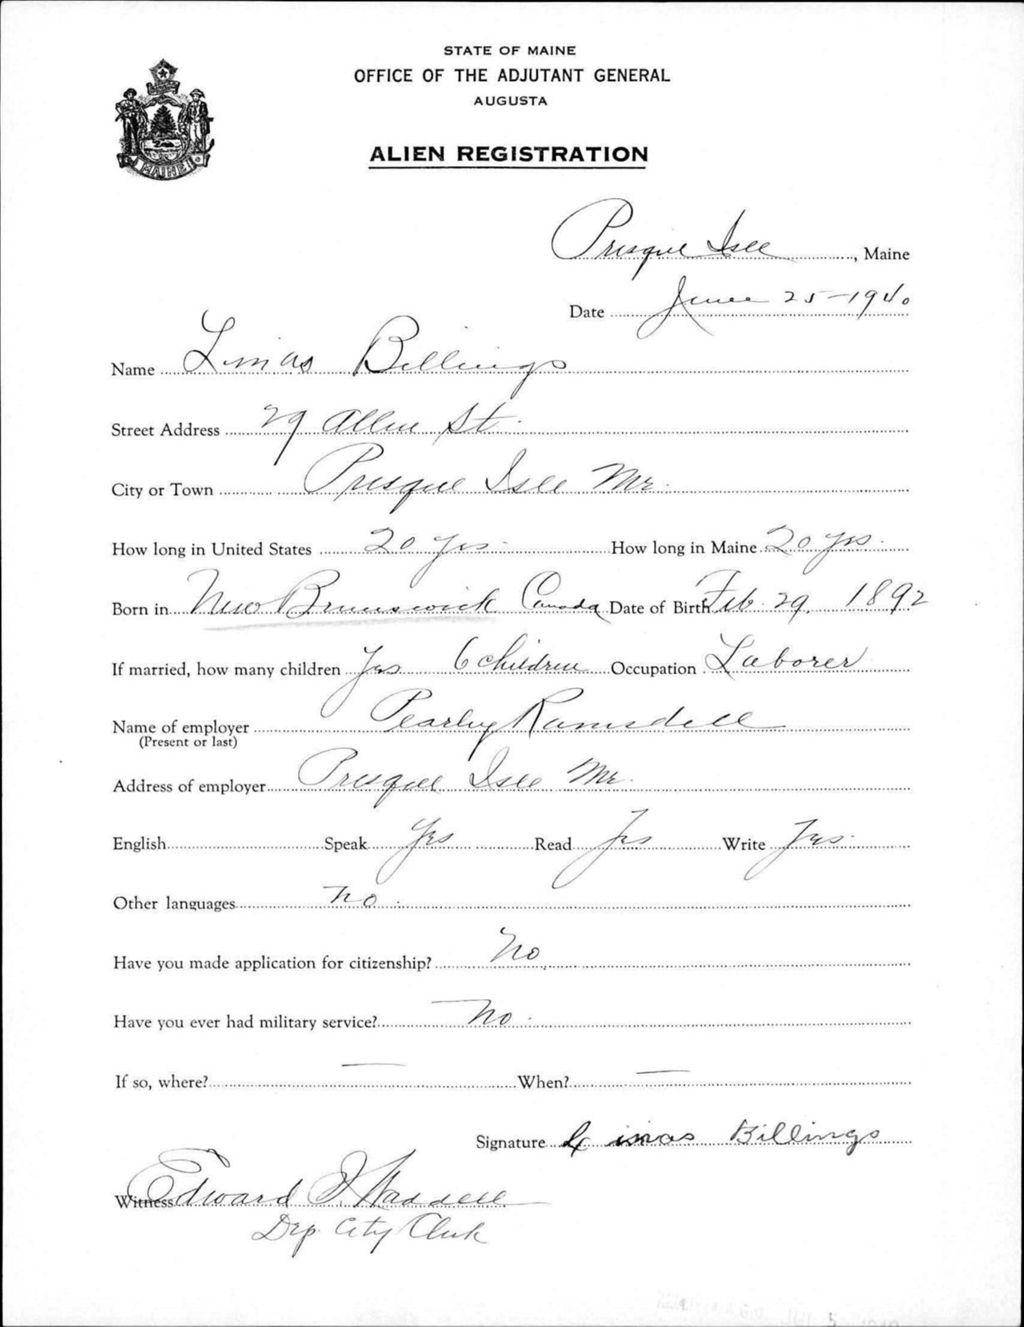 STATE OF MAINE
OFFICE OF THE ADJUTANT GENERAL
AUGUSTA
ALIEN REGISTRATION
MAINE
Presque Isle, Maine
Date June 25-1940
Name Limas Billings
Street Address 29 Allen St.
City or Town Presque Isle Me.
How long in United States 20 yrs. How long in Maine 20 yrs.
Born in New Brunswick Canada Date of Birth Feb. 29, 1892
If married, how many children Yes 6 children Occupation Laborer
Name of employer Pearley Ramsdell
(Present or last)
Address of employer Presque Isle Me.
English Speak Yes Read Yes Write Yes.
Other languages No.
Have you made application for citizenship? No.
Have you ever had military service? No.
If so, where? — When? —
Signature Limas Billings
Witness Edward J. Waddell
Dep City Clerk